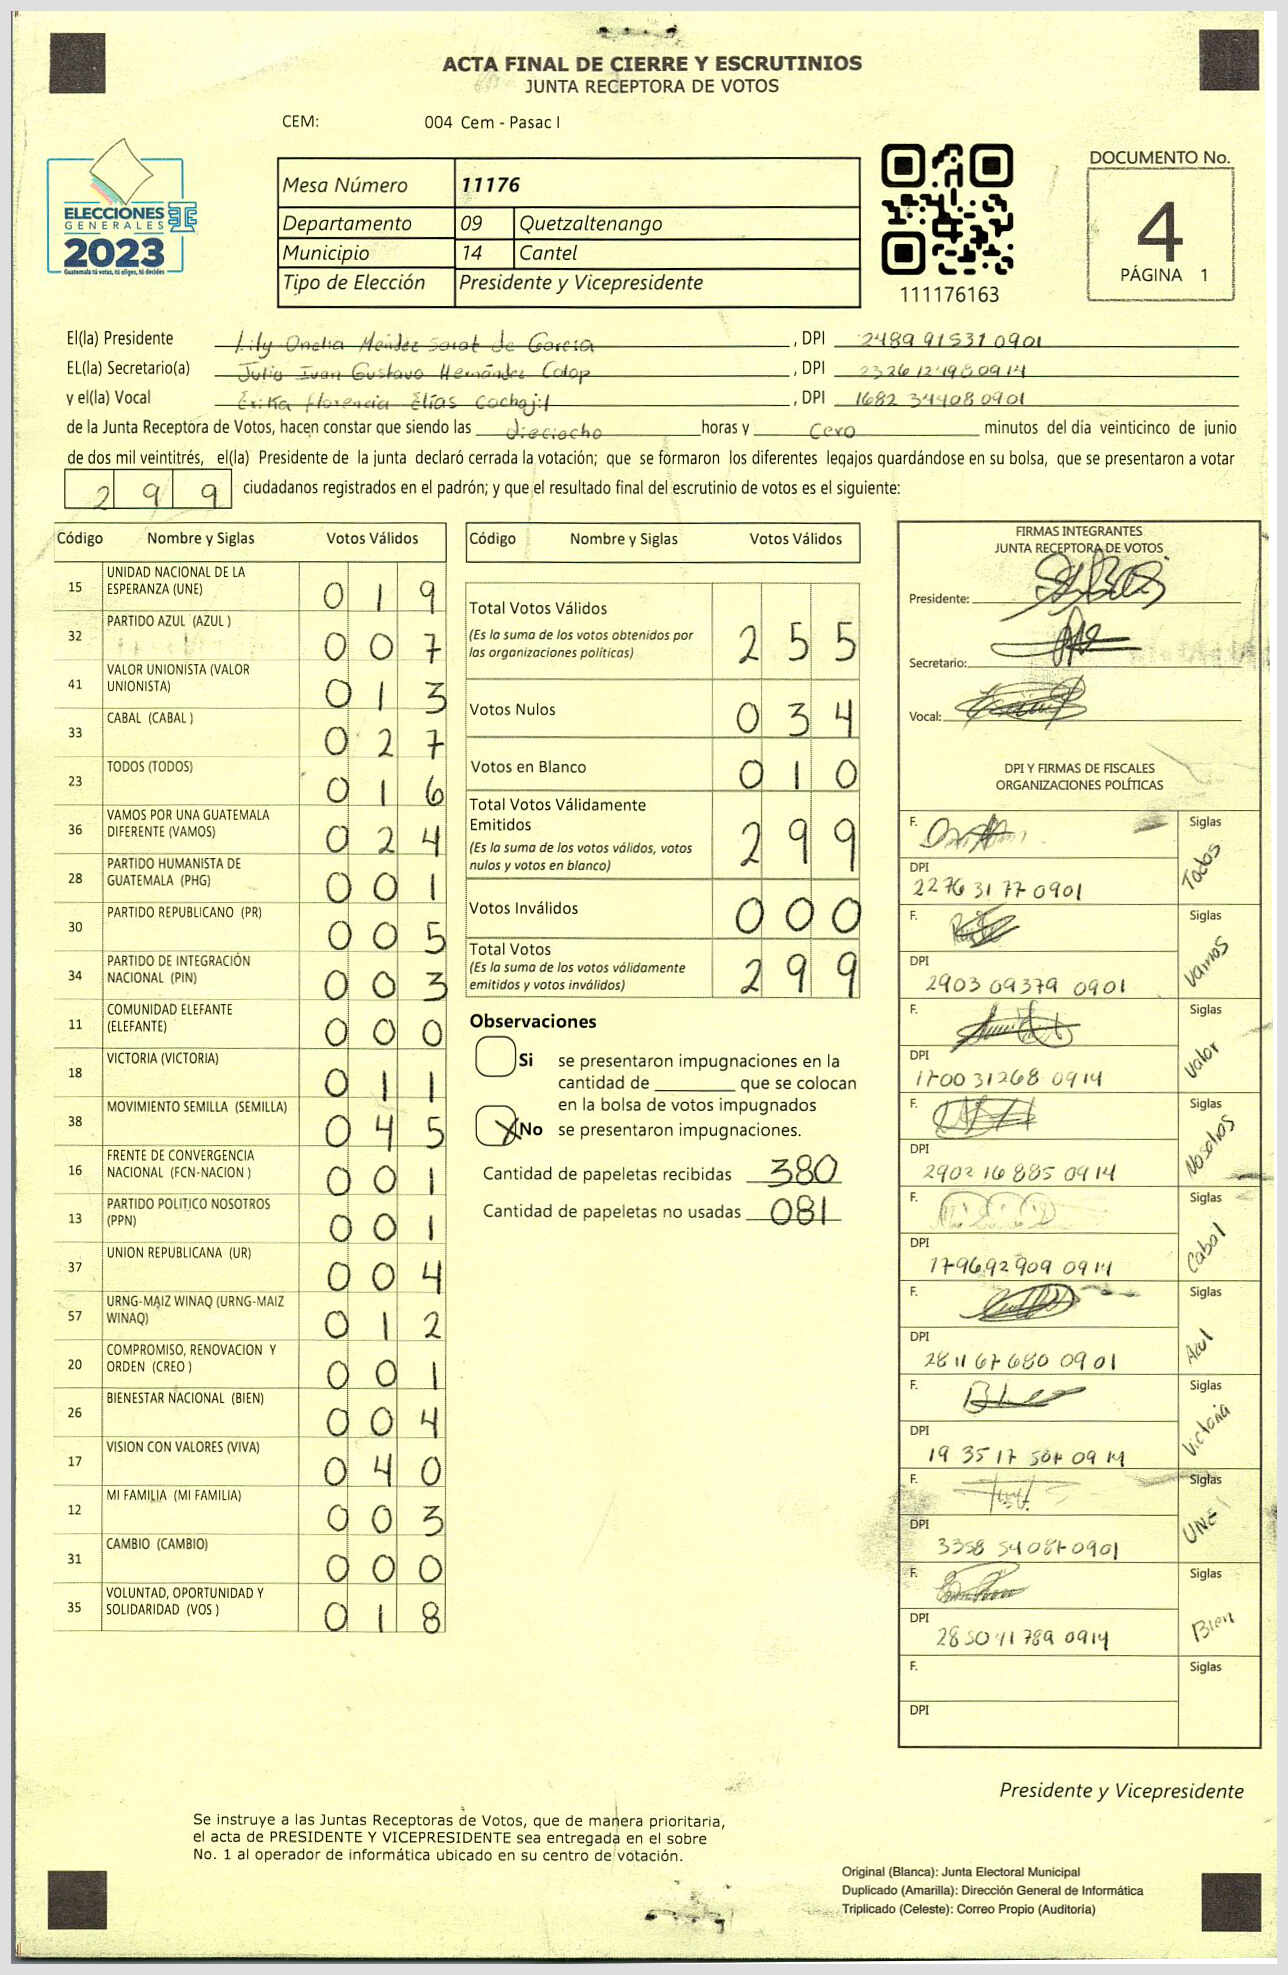 ACTA FINAL DE CIERRE Y ESCRUTINIOS
JUNTA RECEPTORA DE VOTOS
CEM: 004 Cem - Pasac I
ELECCIONES
GENERALES
2023
Guatemala tú votas, tú eliges, tú decides
Mesa Número 11176
Departamento 09 Quetzaltenango
Municipio 14 Cantel
Tipo de Elección Presidente y Vicepresidente
111176163
DOCUMENTO No.
4
PÁGINA 1
El(la) Presidente Lily Onelia Méndez Sarat de García, DPI 2489 91531 0901
EL(la) Secretario(a) Julio Ivan Gustavo Hernández Colop, DPI 2326 12498 0914
y el(la) Vocal Erika Florencia Elías Cachajil, DPI 1682 34408 0901
de la Junta Receptora de Votos, hacen constar que siendo las dieciocho horas y cero minutos del día veinticinco de junio
de dos mil veintitrés, el(la) Presidente de la junta declaró cerrada la votación; que se formaron los diferentes legajos guardándose en su bolsa, que se presentaron a votar
299 ciudadanos registrados en el padrón; y que el resultado final del escrutinio de votos es el siguiente:
Código Nombre y Siglas Votos Válidos
15 UNIDAD NACIONAL DE LA ESPERANZA (UNE) 019
32 PARTIDO AZUL (AZUL ) 007
41 VALOR UNIONISTA (VALOR UNIONISTA) 013
33 CABAL (CABAL ) 027
23 TODOS (TODOS) 016
36 VAMOS POR UNA GUATEMALA DIFERENTE (VAMOS) 024
28 PARTIDO HUMANISTA DE GUATEMALA (PHG) 001
30 PARTIDO REPUBLICANO (PR) 005
34 PARTIDO DE INTEGRACIÓN NACIONAL (PIN) 003
11 COMUNIDAD ELEFANTE (ELEFANTE) 000
18 VICTORIA (VICTORIA) 011
38 MOVIMIENTO SEMILLA (SEMILLA) 045
16 FRENTE DE CONVERGENCIA NACIONAL (FCN-NACION ) 001
13 PARTIDO POLITICO NOSOTROS (PPN) 001
37 UNION REPUBLICANA (UR) 004
57 URNG-MAIZ WINAQ (URNG-MAIZ WINAQ) 012
20 COMPROMISO, RENOVACION Y ORDEN (CREO ) 001
26 BIENESTAR NACIONAL (BIEN) 004
17 VISION CON VALORES (VIVA) 040
12 MI FAMILIA (MI FAMILIA) 003
31 CAMBIO (CAMBIO) 000
35 VOLUNTAD, OPORTUNIDAD Y SOLIDARIDAD (VOS ) 018
Código Nombre y Siglas Votos Válidos
Total Votos Válidos 255
(Es la suma de los votos obtenidos por
las organizaciones políticas)
Votos Nulos 034
Votos en Blanco 010
Total Votos Válidamente
Emitidos 299
(Es la suma de los votos válidos, votos
nulos y votos en blanco)
Votos Inválidos 000
Total Votos 299
(Es la suma de los votos válidamente
emitidos y votos inválidos)
Observaciones
Si se presentaron impugnaciones en la
cantidad de ________ que se colocan
en la bolsa de votos impugnados
X No se presentaron impugnaciones.
Cantidad de papeletas recibidas 380
Cantidad de papeletas no usadas 081
FIRMAS INTEGRANTES
JUNTA RECEPTORA DE VOTOS
Presidente:
Secretario:
Vocal:
DPI Y FIRMAS DE FISCALES
ORGANIZACIONES POLÍTICAS
F. Siglas Todos
DPI 2276 31 77 0901
F. Siglas Vamos
DPI 2903 09379 0901
F. Siglas Valor
DPI 1700 31268 0914
F. Siglas Nosotros
DPI 2902 16885 0914
F. Siglas Cabal
DPI 179692909 0914
F. Siglas Azul
DPI 2811 67680 0901
F. Siglas Victoria
DPI 19 35 17 0914
F. Siglas UNE
DPI 3358 54087 0901
F. Siglas Bien
DPI 28504 1789 0914
F. Siglas
DPI
Presidente y Vicepresidente
Se instruye a las Juntas Receptoras de Votos, que de manera prioritaria,
el acta de PRESIDENTE Y VICEPRESIDENTE sea entregada en el sobre
No. 1 al operador de informática ubicado en su centro de votación.
Original (Blanca): Junta Electoral Municipal
Duplicado (Amarilla): Dirección General de Informática
Triplicado (Celeste): Correo Propio (Auditoría)